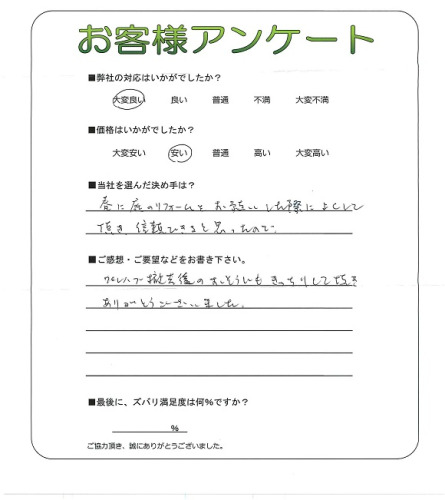 お客様アンケート
■弊社の対応はいかがでしたか?
大変良い 良い 普通 不満 大変不満
■価格はいかがでしたか?
大変安い 安い 普通 高い 大変高い
■当社を選んだ決め手は?
春に庭のリフォームを お願いした際によくして
頂き、信頼できると思ったので。
■ご感想・ご要望などをお書き下さい。
プレハブ撤去後のおそうじも きっちりして頂き
ありがとうございました。
■最後に、ズバリ満足度は何%ですか?
%
ご協力頂き、誠にありがとうございました。